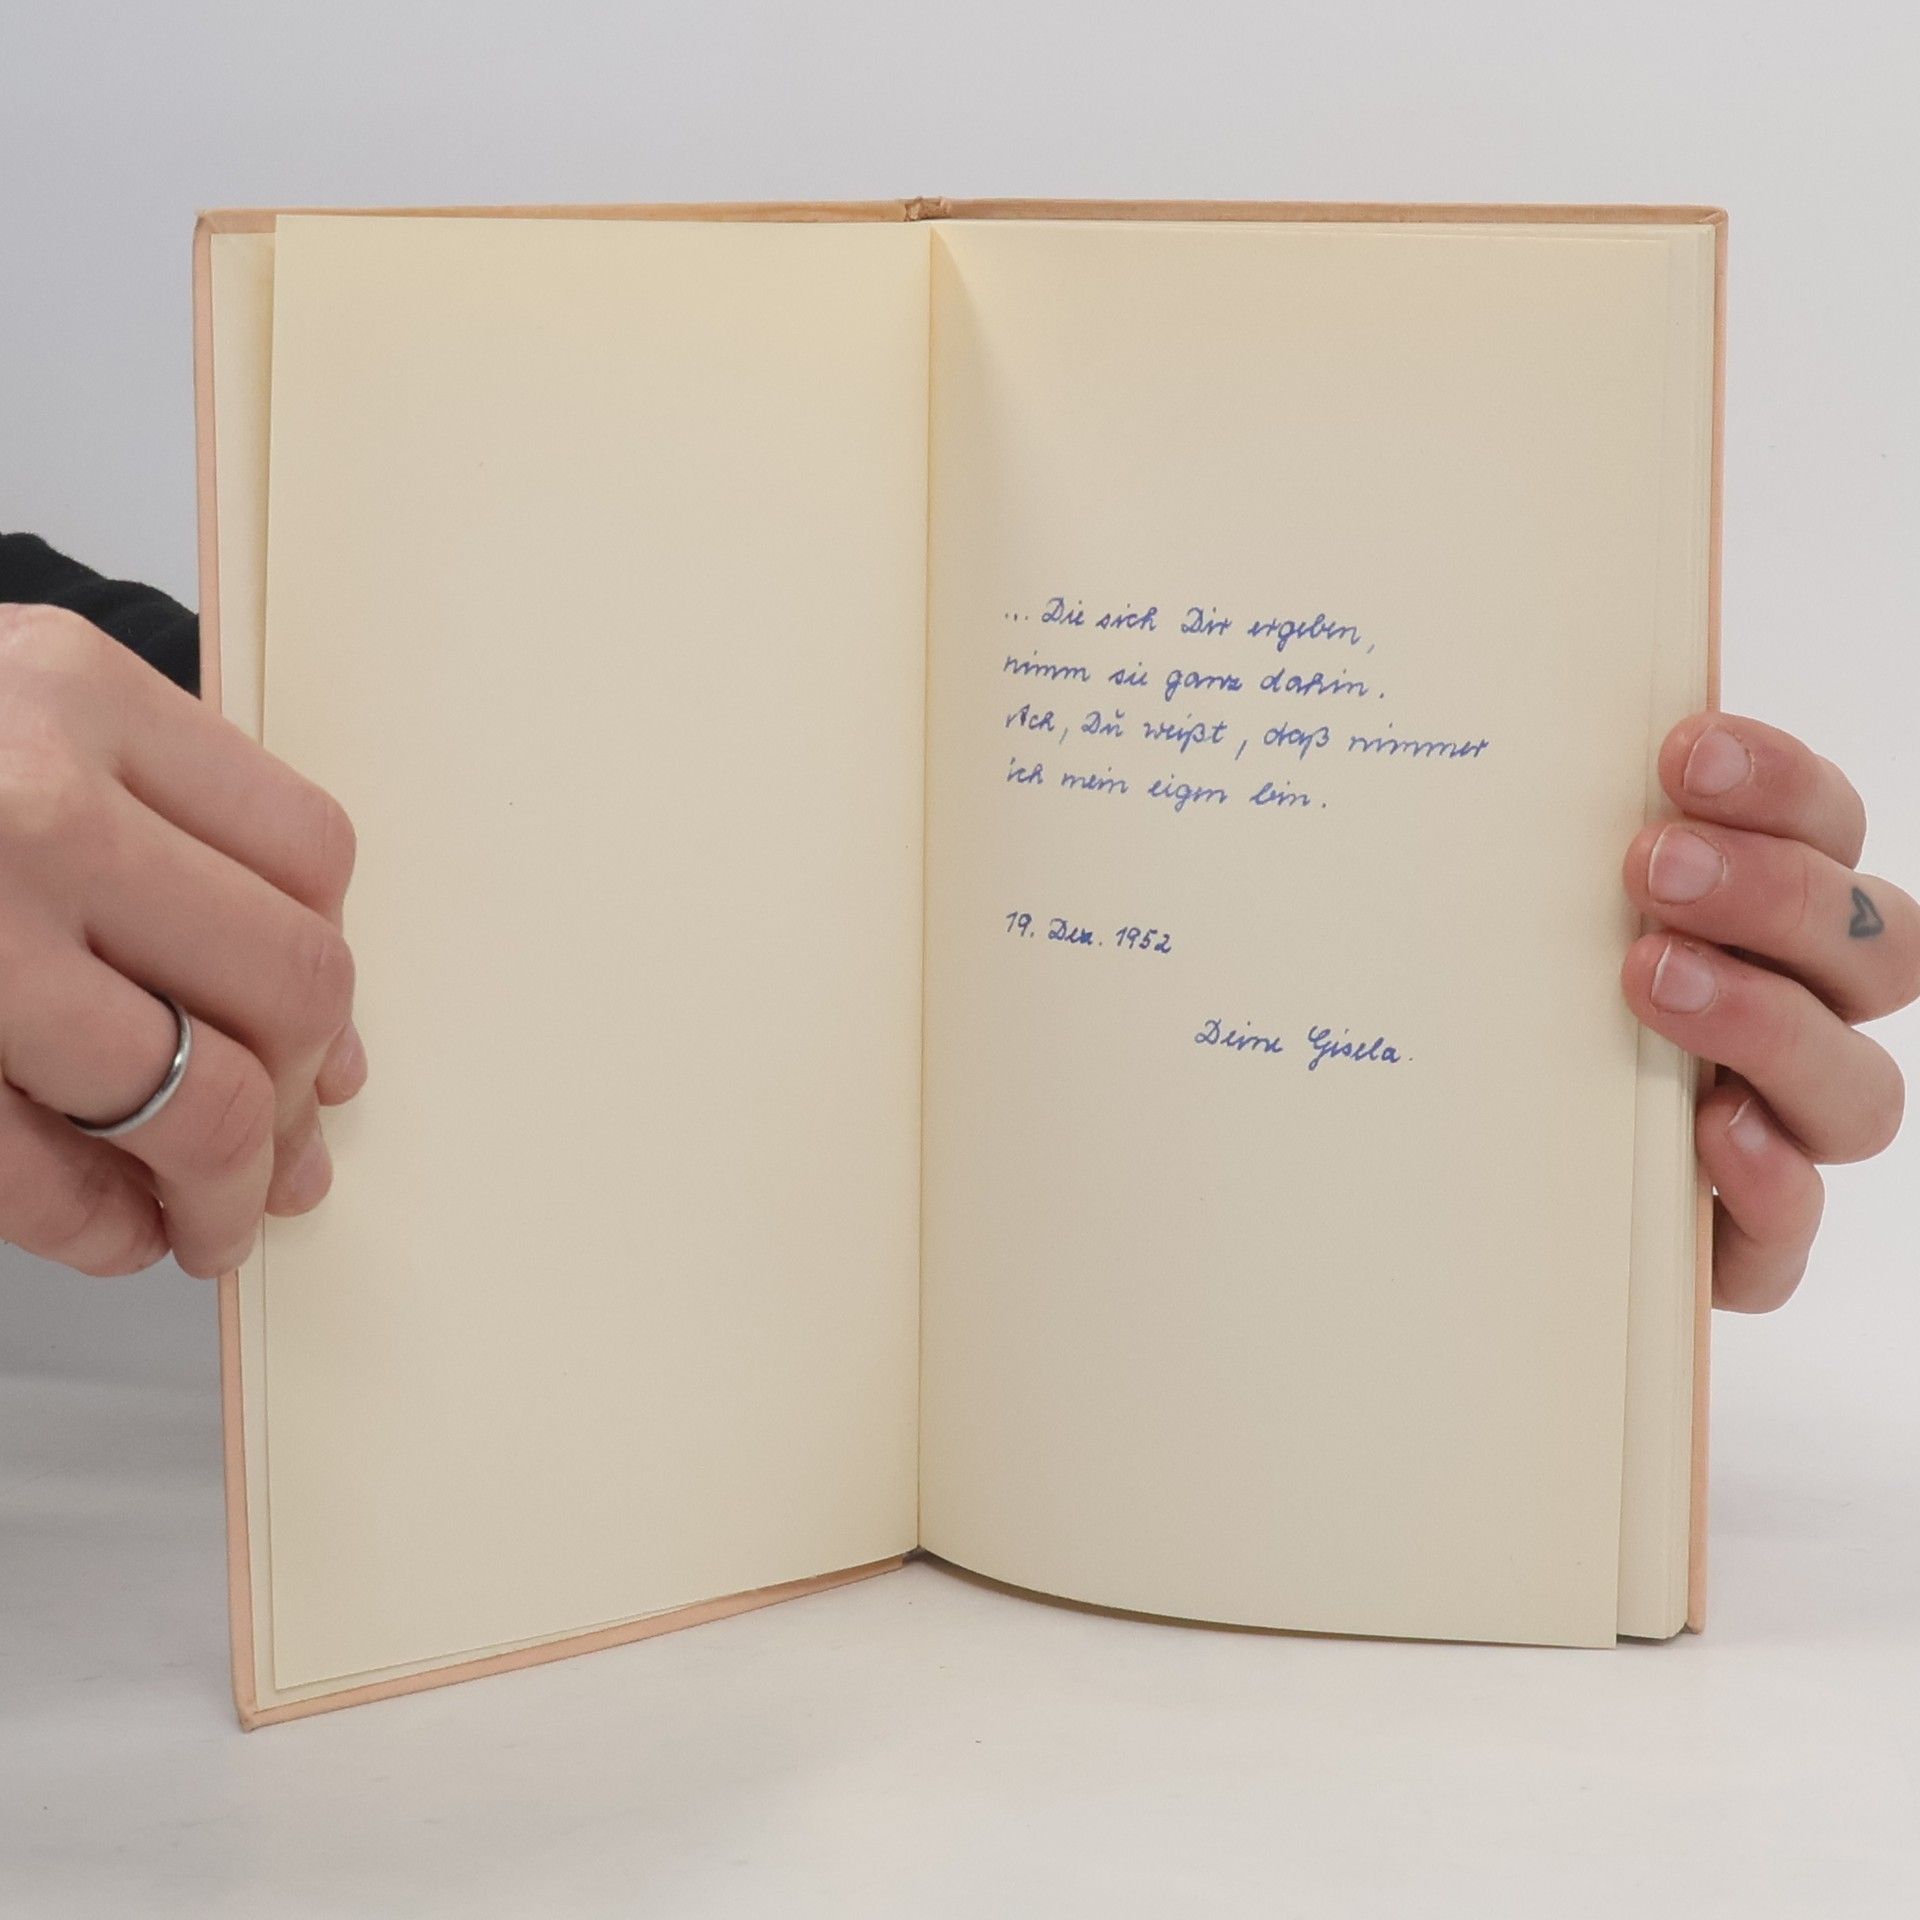 ... Die sich Dir ergeben,
nimm sie ganz dahin.
Ach, Du weißt, daß nimmer
ich mein eigen bin.
19. Dez. 1952
Deine Gisela.